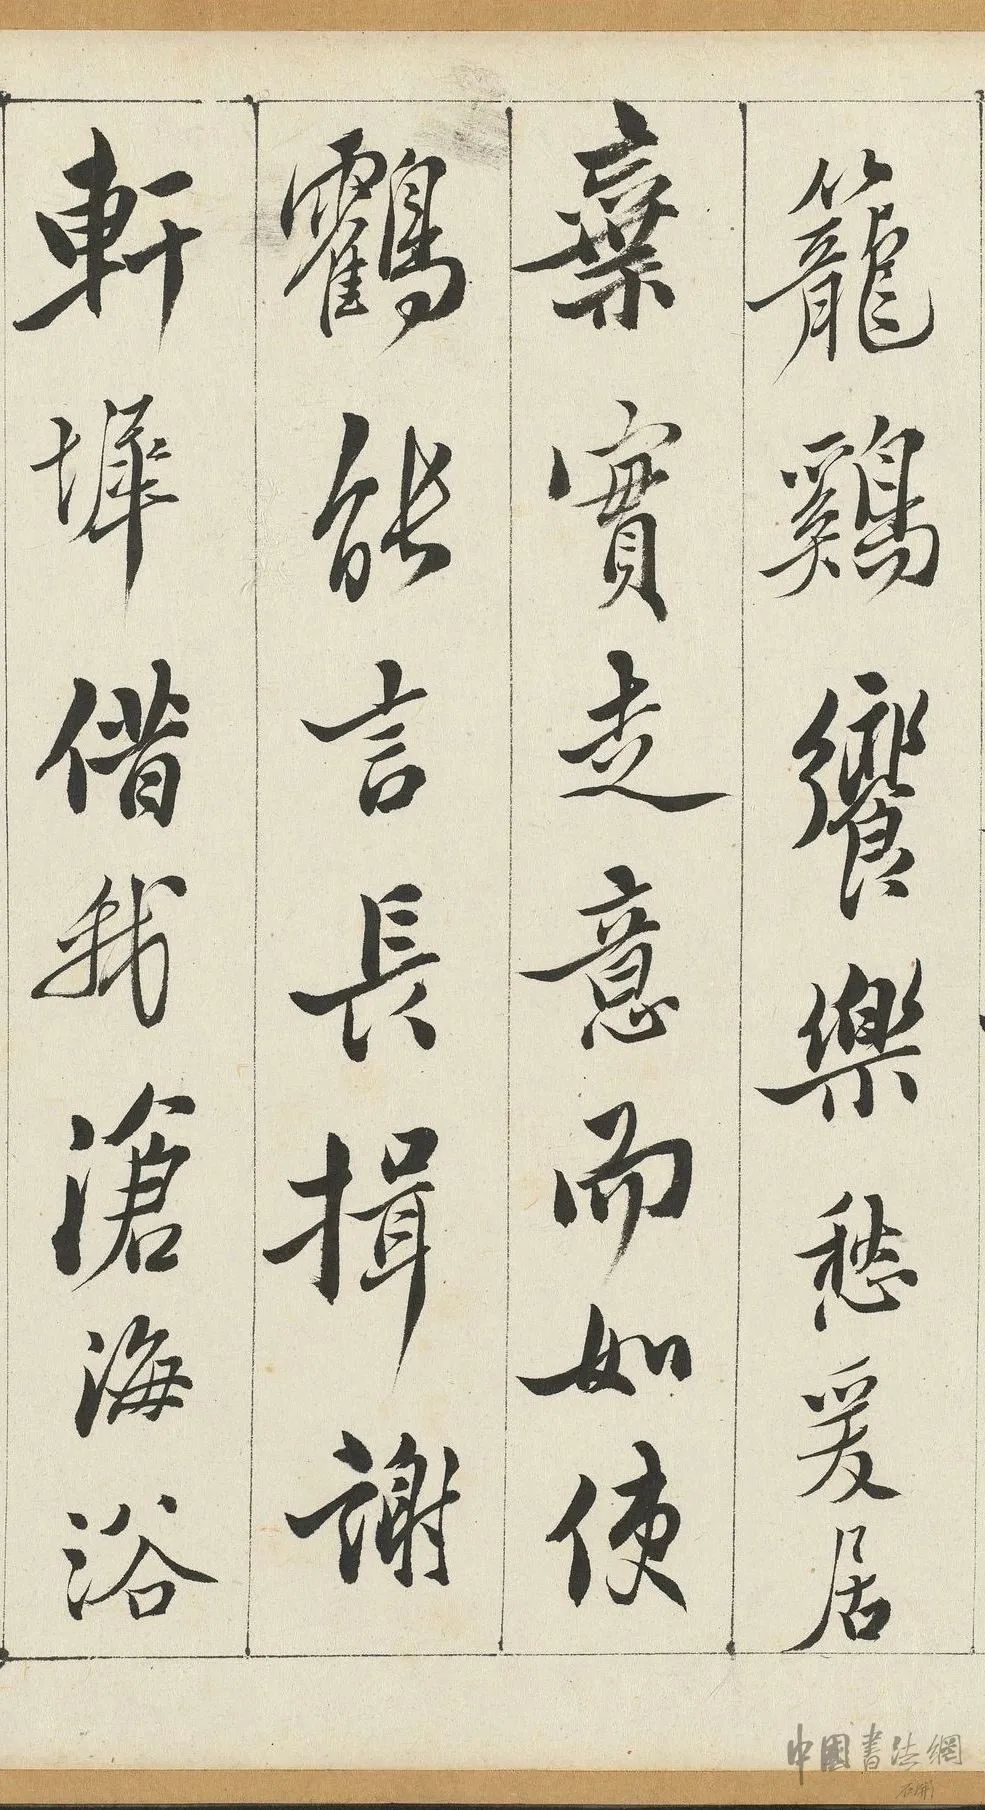 籠鷄饗樂愁爰居
棄實走意而如使
鶴能言長揖謝
軒墀借我滄海浴
中國書法網